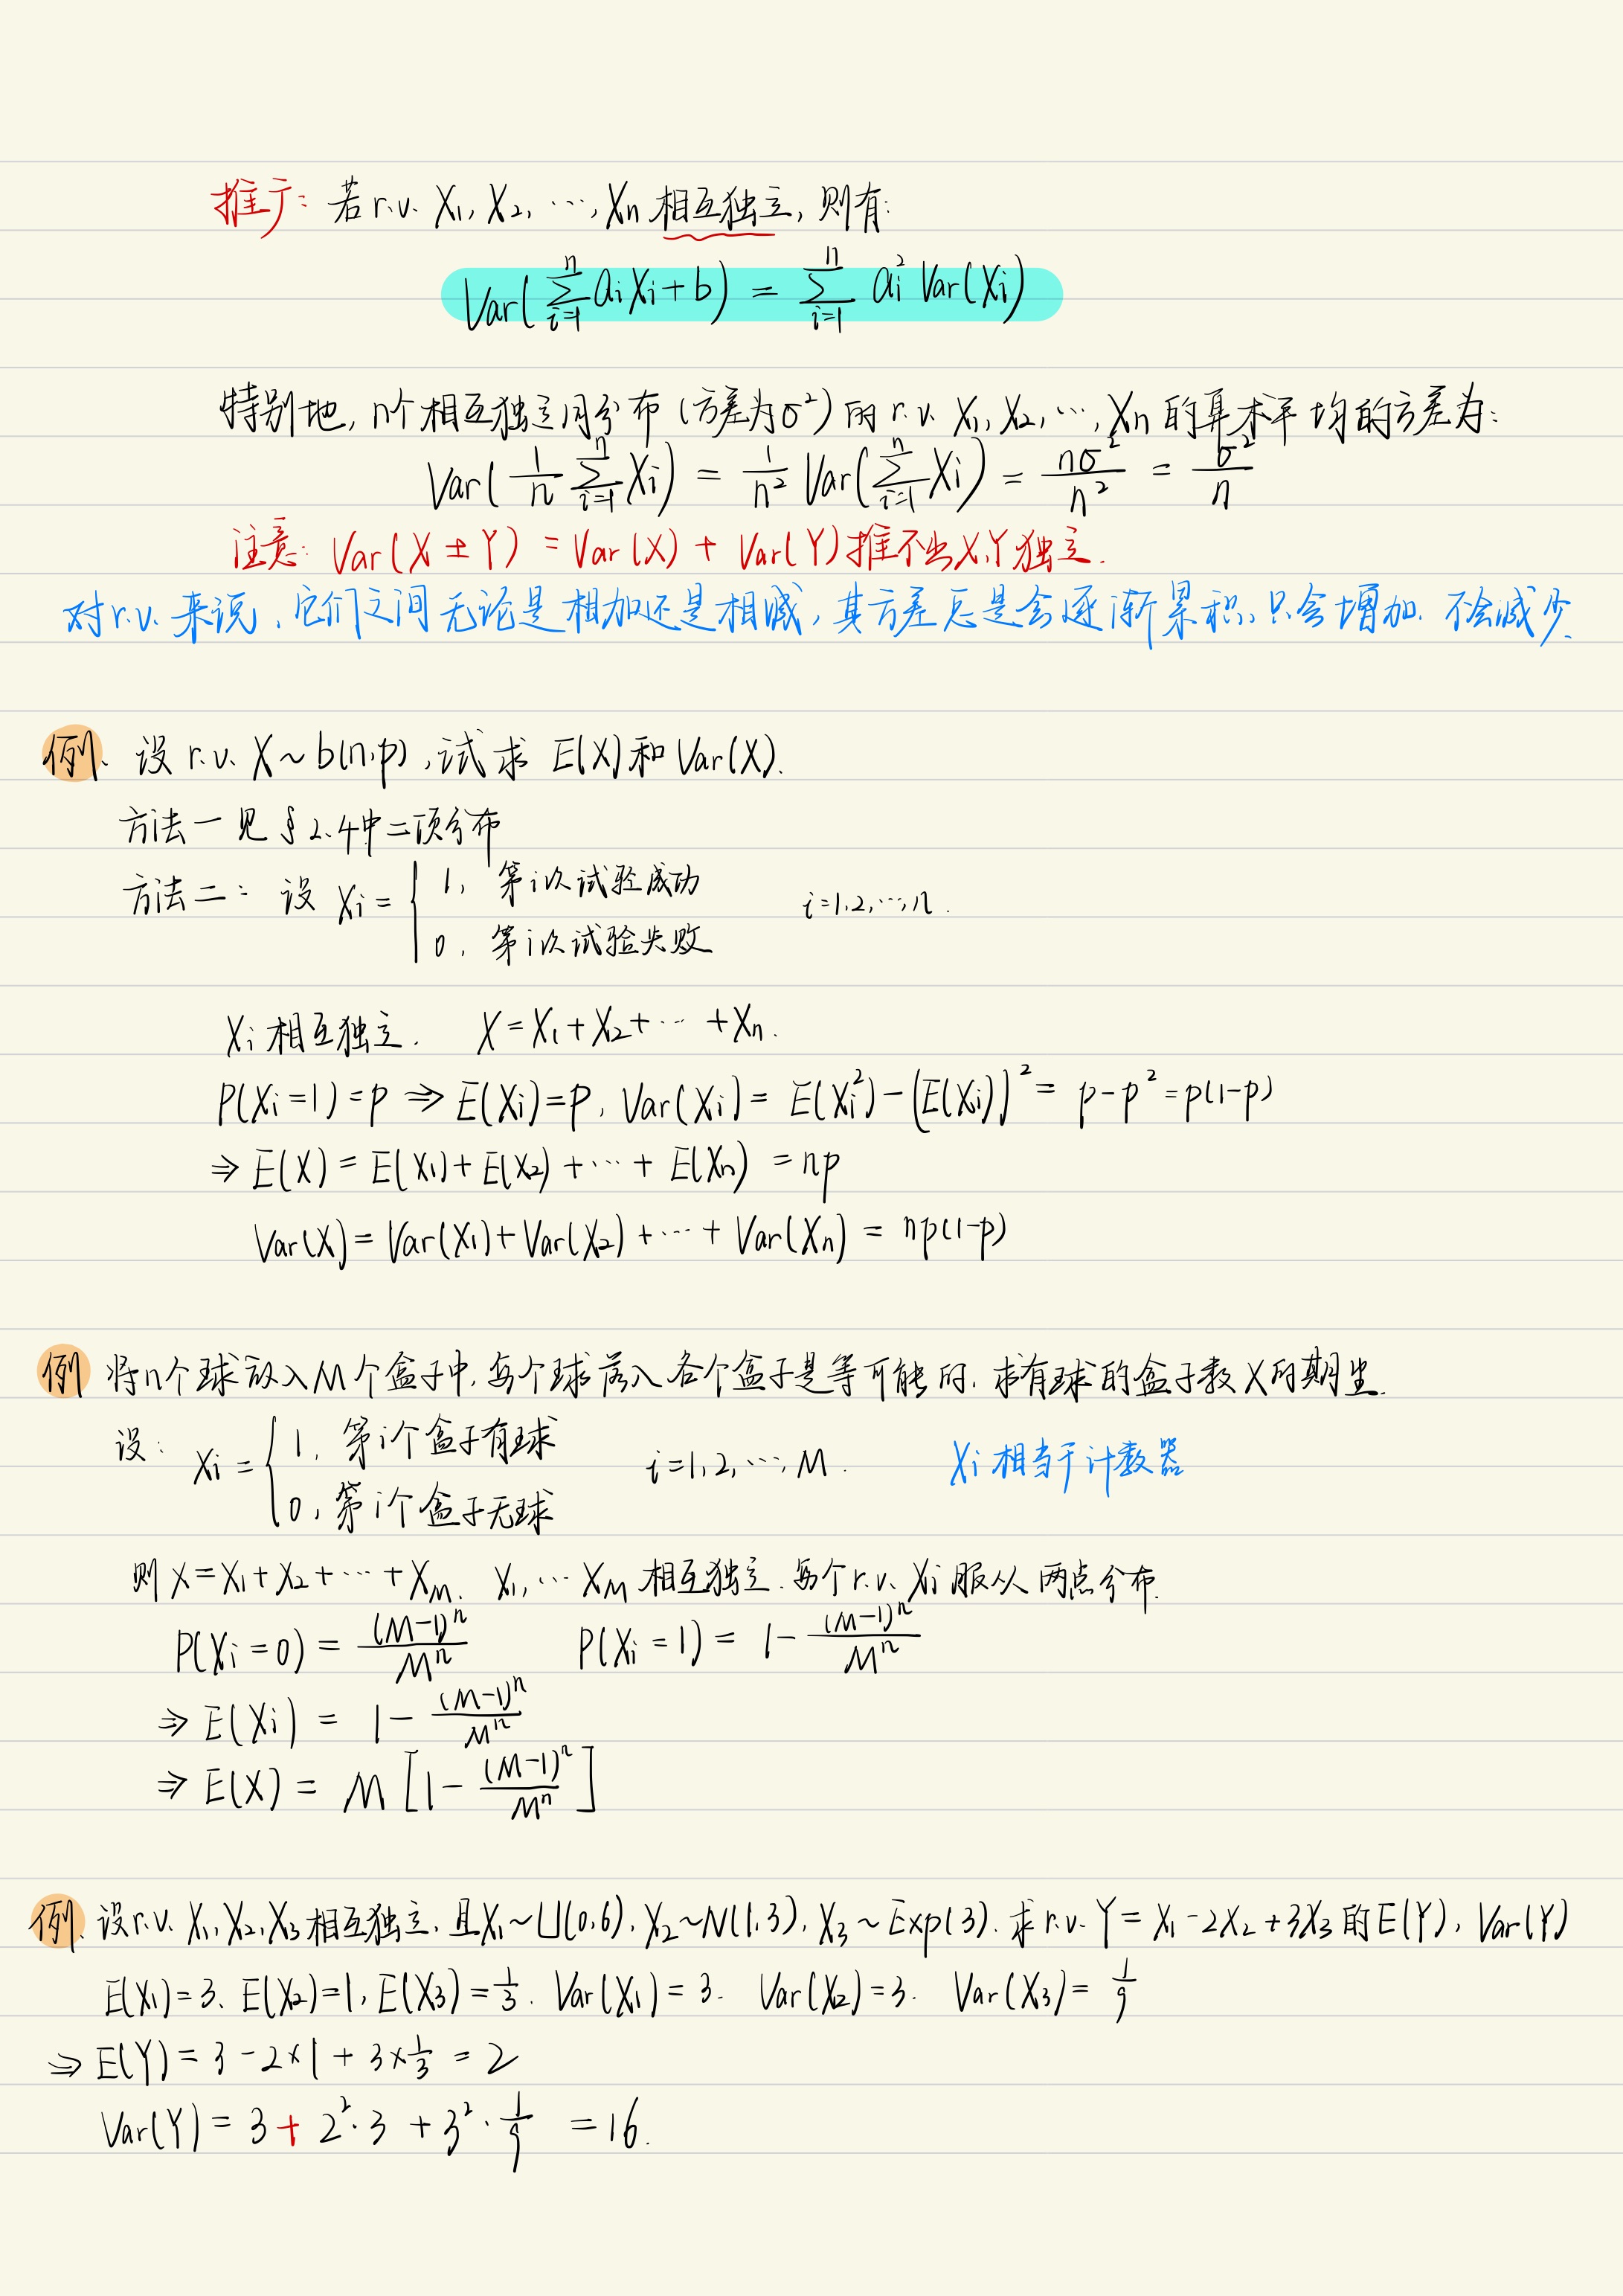 推广: 若 r.v. X₁, X₂, ⋯, Xn 相互独立, 则有:
Var(∑ᵢ₌₁ⁿ aᵢXᵢ + b) = ∑ᵢ₌₁ⁿ aᵢ² Var(Xᵢ)
特别地, n个相互独立同分布 (方差为σ²) 的 r.v. X₁, X₂, ⋯, Xn 的算术平均的方差为:
Var(1/n ∑ᵢ₌₁ⁿ Xᵢ) = 1/n² Var(∑ᵢ₌₁ⁿ Xᵢ) = nσ²/n² = σ²/n
注意: Var(X ± Y) = Var(X) + Var(Y) 推不出 X,Y 独立.
对 r.v. 来说, 它们之间无论是相加还是相减, 其方差总是会逐渐累积, 只会增加, 不会减少.
例. 设 r.v. X ~ b(n,p), 试求 E(X) 和 Var(X).
方法一 见 § 2.4中二项分布
方法二: 设 Xᵢ = { 1, 第i次试验成功
0, 第i次试验失败 i=1,2,⋯,n.
Xᵢ 相互独立. X = X₁ + X₂ + ⋯ + Xn.
P(Xᵢ=1) = p ⇒ E(Xᵢ) = p, Var(Xᵢ) = E(Xᵢ²) - (E(Xᵢ))² = p - p² = p(1-p)
⇒ E(X) = E(X₁) + E(X₂) + ⋯ + E(Xn) = np
Var(X) = Var(X₁) + Var(X₂) + ⋯ + Var(Xn) = np(1-p)
例 将n个球放入M个盒子中, 每个球落入各个盒子是等可能的, 求有球的盒子数X的期望.
设: Xᵢ = { 1, 第i个盒子有球
0, 第i个盒子无球 i=1,2,⋯,M. Xᵢ 相当于计数器
则 X = X₁ + X₂ + ⋯ + X_M. X₁, ⋯ X_M 相互独立. 每个 r.v. Xᵢ 服从两点分布.
P(Xᵢ=0) = (M-1)ⁿ/Mⁿ P(Xᵢ=1) = 1 - (M-1)ⁿ/Mⁿ
⇒ E(Xᵢ) = 1 - (M-1)ⁿ/Mⁿ
⇒ E(X) = M [1 - (M-1)ⁿ/Mⁿ]
例. 设 r.v. X₁, X₂, X₃ 相互独立, 且 X₁ ~ U(0,6), X₂ ~ N(1,3), X₃ ~ Exp(3). 求 r.v. Y = X₁ - 2X₂ + 3X₃ 的 E(Y), Var(Y)
E(X₁) = 3, E(X₂) = 1, E(X₃) = 1/3. Var(X₁) = 3. Var(X₂) = 3. Var(X₃) = 1/9
⇒ E(Y) = 3 - 2×1 + 3×1/3 = 2
Var(Y) = 3 + 2²·3 + 3²·1/9 = 16.